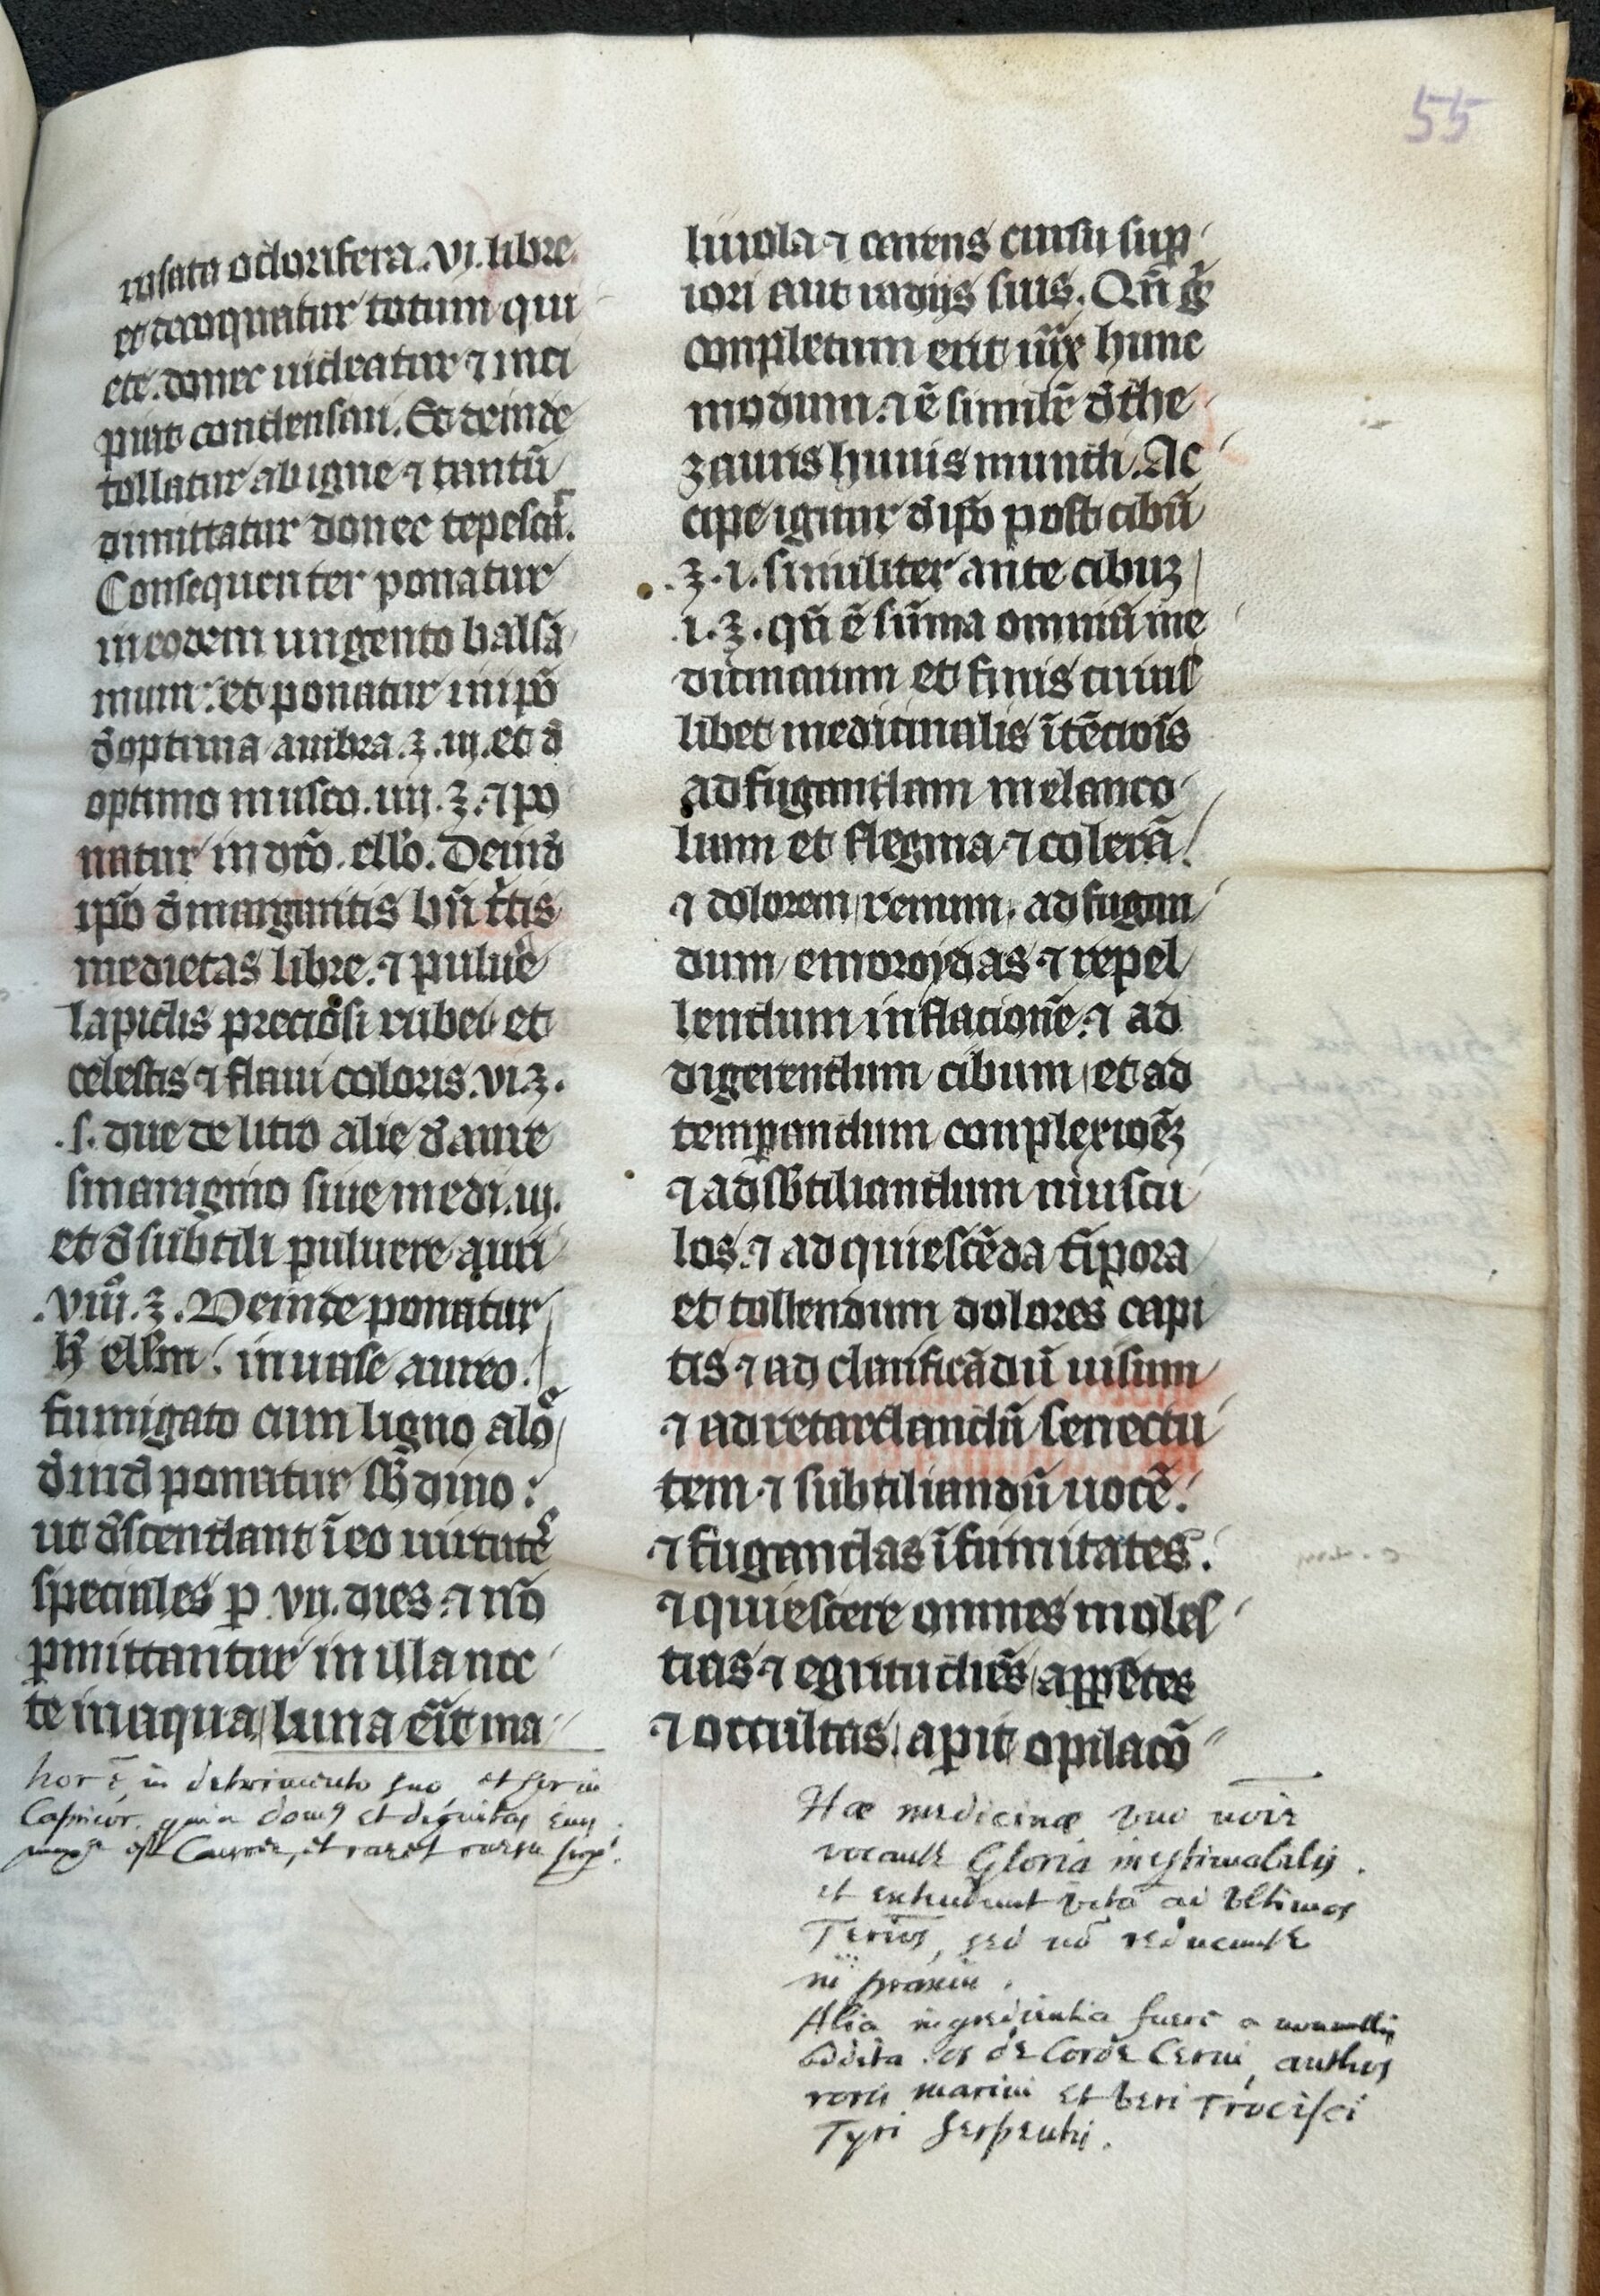 55
rosata odorifera. vi. libre
et decoquatur totum qui
ete. donec uideatur ⁊ inci
piat condensari. Et deinde
tollatur ab igne ⁊ tantū
dimittatur donec tepescat.
Consequenter ponatur
in eodem ungento balsa
mum: et ponatur in ip̄o
đ optima ambra. ʒ. iij. et đ
optimo musco. iiij. ʒ. ⁊ po
natur in dc̄o. ell̄o. Deinđ
ip̄o đ margaritis bn̄ t̄tis
medietas libre. ⁊ puluē
lapidis preciosi rubei et
celestis ⁊ flaui coloris. vi. ʒ.
et đ subtili puluere auri
.viii. ʒ. Deinde ponatur
h̄ ell̄m. in uase aureo.
fumigato cum ligno aloe
đinđ ponatur sb̄ diuo:
ut đscendant ī eo uirtutes
speciales p vij. dies. ⁊ nō
pmittantur in illa noc
te in aqua luna ē īt ma
liuola ⁊ carens cursu sup
iori aut radijs suis. Qn̄ g̊
completum erit iux hunc
modum. ⁊ ē similr̄ đ the
zauris huius mundi. Ac
cipe igitur đ ip̄o post cibū
.ʒ. i. similiter ante cibuʒ
.i. ʒ. qn̄ ē sūma omniū me
dicinarum et finis cuius
libet medicinalis ītēciois
ad fugandam melanco
liam et flegma ⁊ colerā.
⁊ dolorem renum. ad fugan
dum emoroydas ⁊ repel
lendum inflacionē. ⁊ ad
digerendum cibum et ad
temperandum complexioēʒ
⁊ ad sb̄tiliandum muscu
los. ⁊ ad quiescēda tīpora
et tollendum dolores capi
tis ⁊ ad clarificādū uisum
⁊ ad retardandū senectu
tem ⁊ subtiliandū uocē.
⁊ fugandas īfirmitates.
⁊ quiescere omnes moles
tias ⁊ egritudines apparētes
⁊ occultas. apit opilacō
in detrimento suo et
Capricor. quia domꝯ et dignitas
est Cancer, et caret cursu sup.
Hæ medicinæ duo
vocant Gloria inestimabilis.
et extendunt vitā ad vltimos
Terīos, sed nō reducunt
Alia ingredientia fuere a nonnullis
addita. os de Corde Cerui, anthos
roris marini et veri Trocisci
Tyri serpentis.